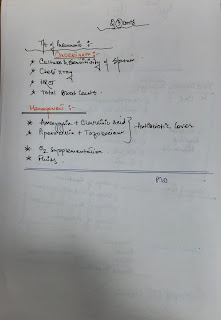 Tt of Pneumonia :-
Investigations :-
* Culture & Sensitivity of Sputum
* Chest X ray
* HRCT
* Total Blood Count.
Management :-
* Amoxycillin + Clavulinic acid
* Piperacillin + Tazobactum } Antibiotic Cover
* O2 Supplementation
* Fluids.
PTO